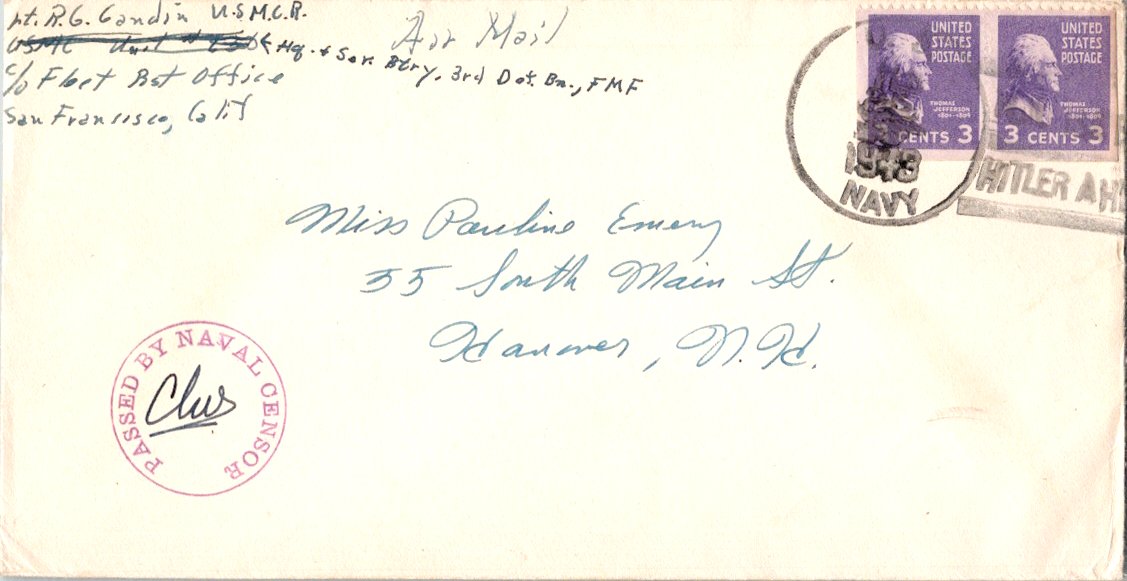 Lt. R.G. Gandin U.S.M.C.R.
USMC Unit # Hq. + Ser. Btry, 3rd Def. Bn., FMF
c/o Fleet Post Office
San Francisco, Calif
Air Mail
UNITED STATES POSTAGE
THOMAS JEFFERSON
1801-1809
3 CENTS 3
UNITED STATES POSTAGE
THOMAS JEFFERSON
1801-1809
3 CENTS 3
1943
NAVY
HITLER A
Miss Pauline Emery
35 South Main St.
Hanover, N.H.
PASSED BY NAVAL CENSOR